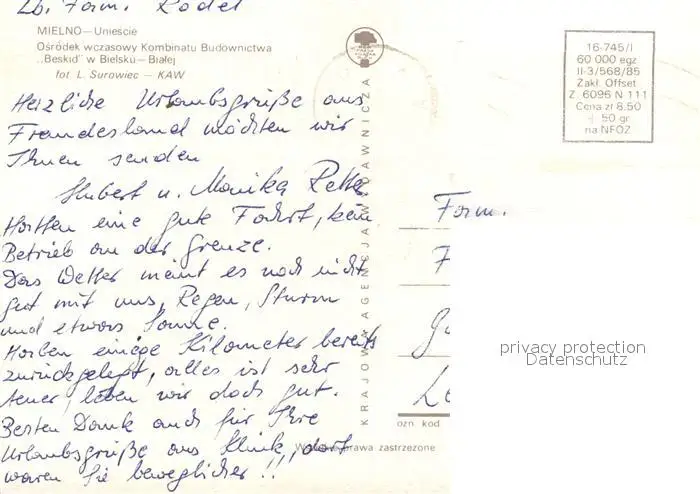 Lb. Fam. Rödel
MIELNO—Unieście
Ośrodek wczasowy Kombinatu Budownictwa
„Beskid" w Bielsku—Białej
fot L. Surowiec — KAW
Herzliche Urlaubsgrüße aus
Freundesland möchten wir
Ihnen senden
Hubert u. Monika
Hatten eine gute Fahrt, kein
Betrieb an der Grenze.
Das Wetter meint es noch nicht
gut mit uns, Regen, Sturm
und etwas Sonne.
Haben einige Kilometer bereits
zurückgelegt, alles ist sehr
teuer, leben wir doch gut.
Besten Dank auch für Ihre
Urlaubsgrüße aus Klink, dort
waren Sie beweglicher!!
KRAJOWA AGENCJA WYDAWNICZA
16-745/I
60 000 egz
II-3/568/85
Zakł. Offset
Z. 6096 N 111
Cena zł 8,50
+ 50 gr
na NFOZ
Fam.
F
Le
ozn kod
prawa zastrzeżone
privacy protection
Datenschutz